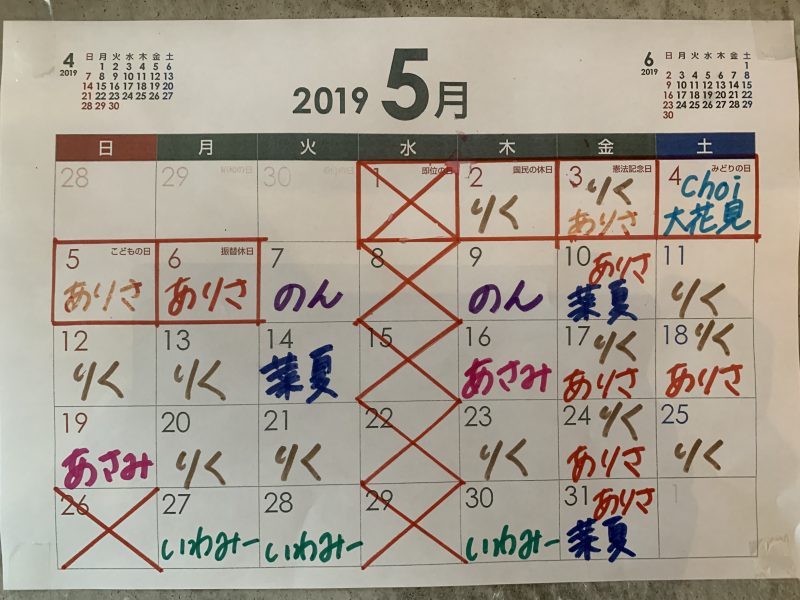 4
2019
日 月 火 水 木 金 土
1 2 3 4 5 6
7 8 9 10 11 12 13
14 15 16 17 18 19 20
21 22 23 24 25 26 27
28 29 30
2019 5月
6
2019
日 月 火 水 木 金 土
1
2 3 4 5 6 7 8
9 10 11 12 13 14 15
16 17 18 19 20 21 22
23 24 25 26 27 28 29
30
日 月 火 水 木 金 土
28
29
30
1 即位の日
2 国民の休日
りく
3 憲法記念日
りく
ありさ
4 みどりの日
choi
大花見
5 こどもの日
ありさ
6 振替休日
ありさ
7
のん
8
9
のん
10 ありさ
葉夏
11
りく
12
りく
13
りく
14
葉夏
15
16
あさみ
17 りく
ありさ
18 りく
ありさ
19
あさみ
20
りく
21
りく
22
23
りく
24 りく
ありさ
25
りく
26
27
いわみー
28
いわみー
29
30
いわみー
31 ありさ
葉夏
1